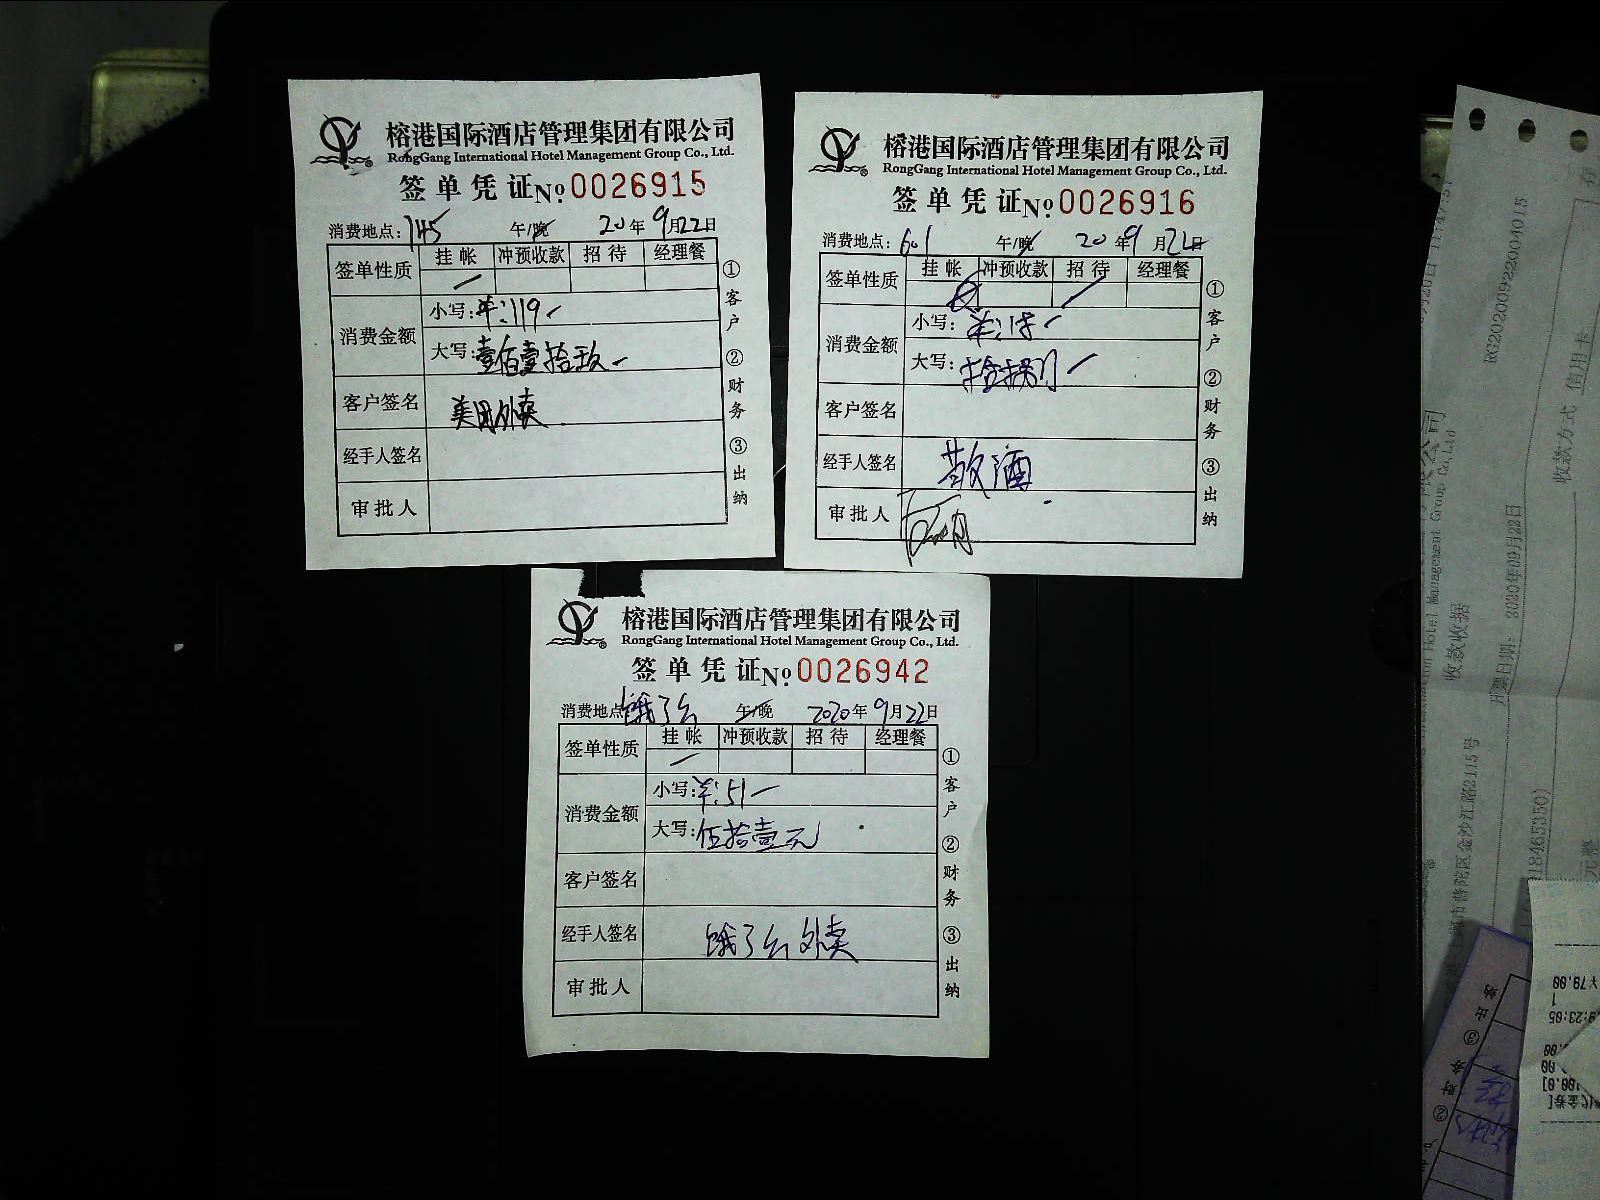 榕港国际酒店管理集团有限公司
RongGang International Hotel Management Group Co., Ltd.
签单凭证No.0026915
消费地点: 145 午/晚 20年9月22日
签单性质 挂帐 冲预收款 招待 经理餐
消费金额 小写:¥:119
大写:壹佰壹拾玖
客户签名 美团外卖
经手人签名
审批人
①客户 ②财务 ③出纳
榕港国际酒店管理集团有限公司
RongGang International Hotel Management Group Co., Ltd.
签单凭证No.0026916
消费地点: 601 午/晚 20年9月22日
签单性质 挂帐 冲预收款 招待 经理餐
消费金额 小写:¥:18
大写:拾捌
客户签名
经手人签名 散酒
审批人
①客户 ②财务 ③出纳
榕港国际酒店管理集团有限公司
RongGang International Hotel Management Group Co., Ltd.
签单凭证No.0026942
消费地点 饿了么 午/晚 2020年9月22日
签单性质 挂帐 冲预收款 招待 经理餐
消费金额 小写:¥:51
大写:伍拾壹元
客户签名
经手人签名 饿了么外卖
审批人
①客户 ②财务 ③出纳
RG20200922204015
收款方式 信用卡
收款收据
开票日期: 2020年09月22日
市普陀区金沙江路2115号
¥78.00